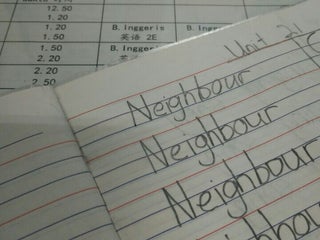 12.50
1.20
1.20 B. Inggeris B. Ingg
1.50 英语 2E 英语
1.50 B. Inggeris B. Ingg
2.20 英语 2E
2.20
2.50
Unit
Neighbour
Neighbour
Neighbour